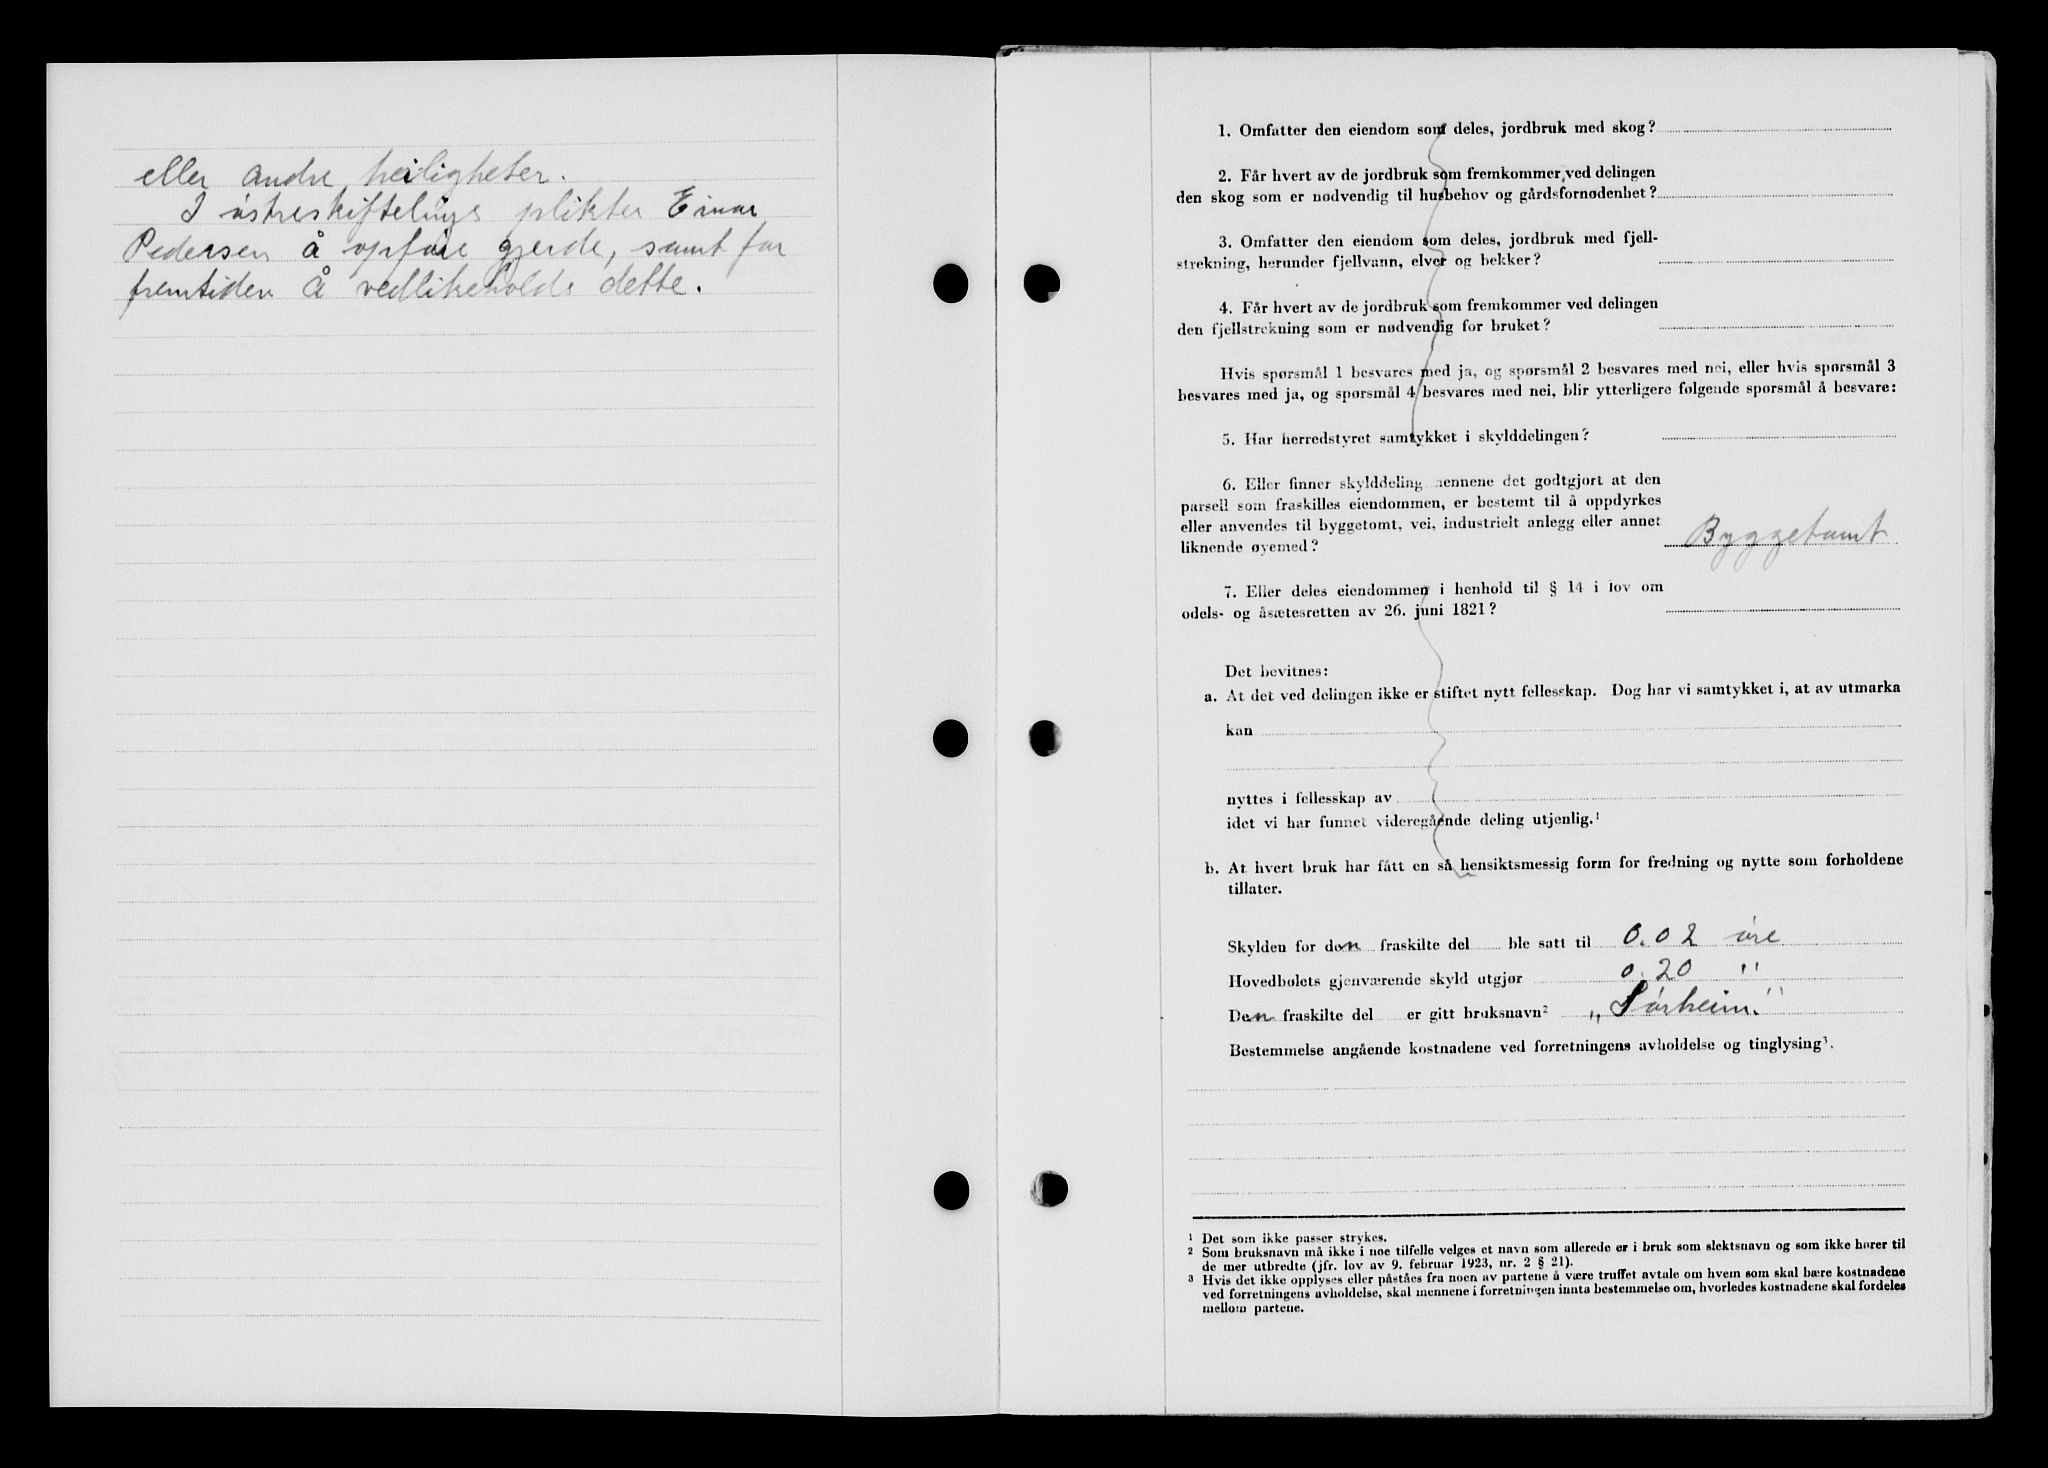 eller andre heiligheter.
I østreskiftelinje plikter Einar
Pedersen å opføre gjerde, samt for
fremtiden å vedlikeholde dette.
1. Omfatter den eiendom som deles, jordbruk med skog?
2. Får hvert av de jordbruk som fremkommer ved delingen
den skog som er nødvendig til husbehov og gårdsfornødenhet?
3. Omfatter den eiendom som deles, jordbruk med fjell-
strekning, herunder fjellvann, elver og bekker?
4. Får hvert av de jordbruk som fremkommer ved delingen
den fjellstrekning som er nødvendig for bruket?
Hvis spørsmål 1 besvares med ja, og spørsmål 2 besvares med nei, eller hvis spørsmål 3
besvares med ja, og spørsmål 4 besvares med nei, blir ytterligere følgende spørsmål å besvare:
5. Har herredstyret samtykket i skylddelingen?
6. Eller finner skylddelingsmennene det godtgjort at den
parsell som fraskilles eiendommen, er bestemt til å oppdyrkes
eller anvendes til byggetomt, vei, industrielt anlegg eller annet
liknende øyemed? Byggetomt
7. Eller deles eiendommen i henhold til § 14 i lov om
odels- og åsætesretten av 26. juni 1821?
Det bevitnes:
a. At det ved delingen ikke er stiftet nytt fellesskap. Dog har vi samtykket i, at av utmarka
kan
nyttes i fellesskap av
idet vi har funnet videregående deling utjenlig.¹
b. At hvert bruk har fått en så hensiktsmessig form for fredning og nytte som forholdene
tillater.
Skylden for den fraskilte del ble satt til 0.02 øre
Hovedbølets gjenværende skyld utgjør 0.20 "
Den fraskilte del er gitt bruksnavn² „Sørheim."
Bestemmelse angående kostnadene ved forretningens avholdelse og tinglysing³.
¹ Det som ikke passer strykes.
² Som bruksnavn må ikke i noe tilfelle velges et navn som allerede er i bruk som slektsnavn og som ikke hører til
de mer utbredte (jfr. lov av 9. februar 1923, nr. 2 § 21).
³ Hvis det ikke opplyses eller påståes fra noen av partene å være truffet avtale om hvem som skal bære kostnadene
ved forretningens avholdelse, skal mennene i forretningen innta bestemmelse om, hvorledes kostnadene skal fordeles
mellom partene.